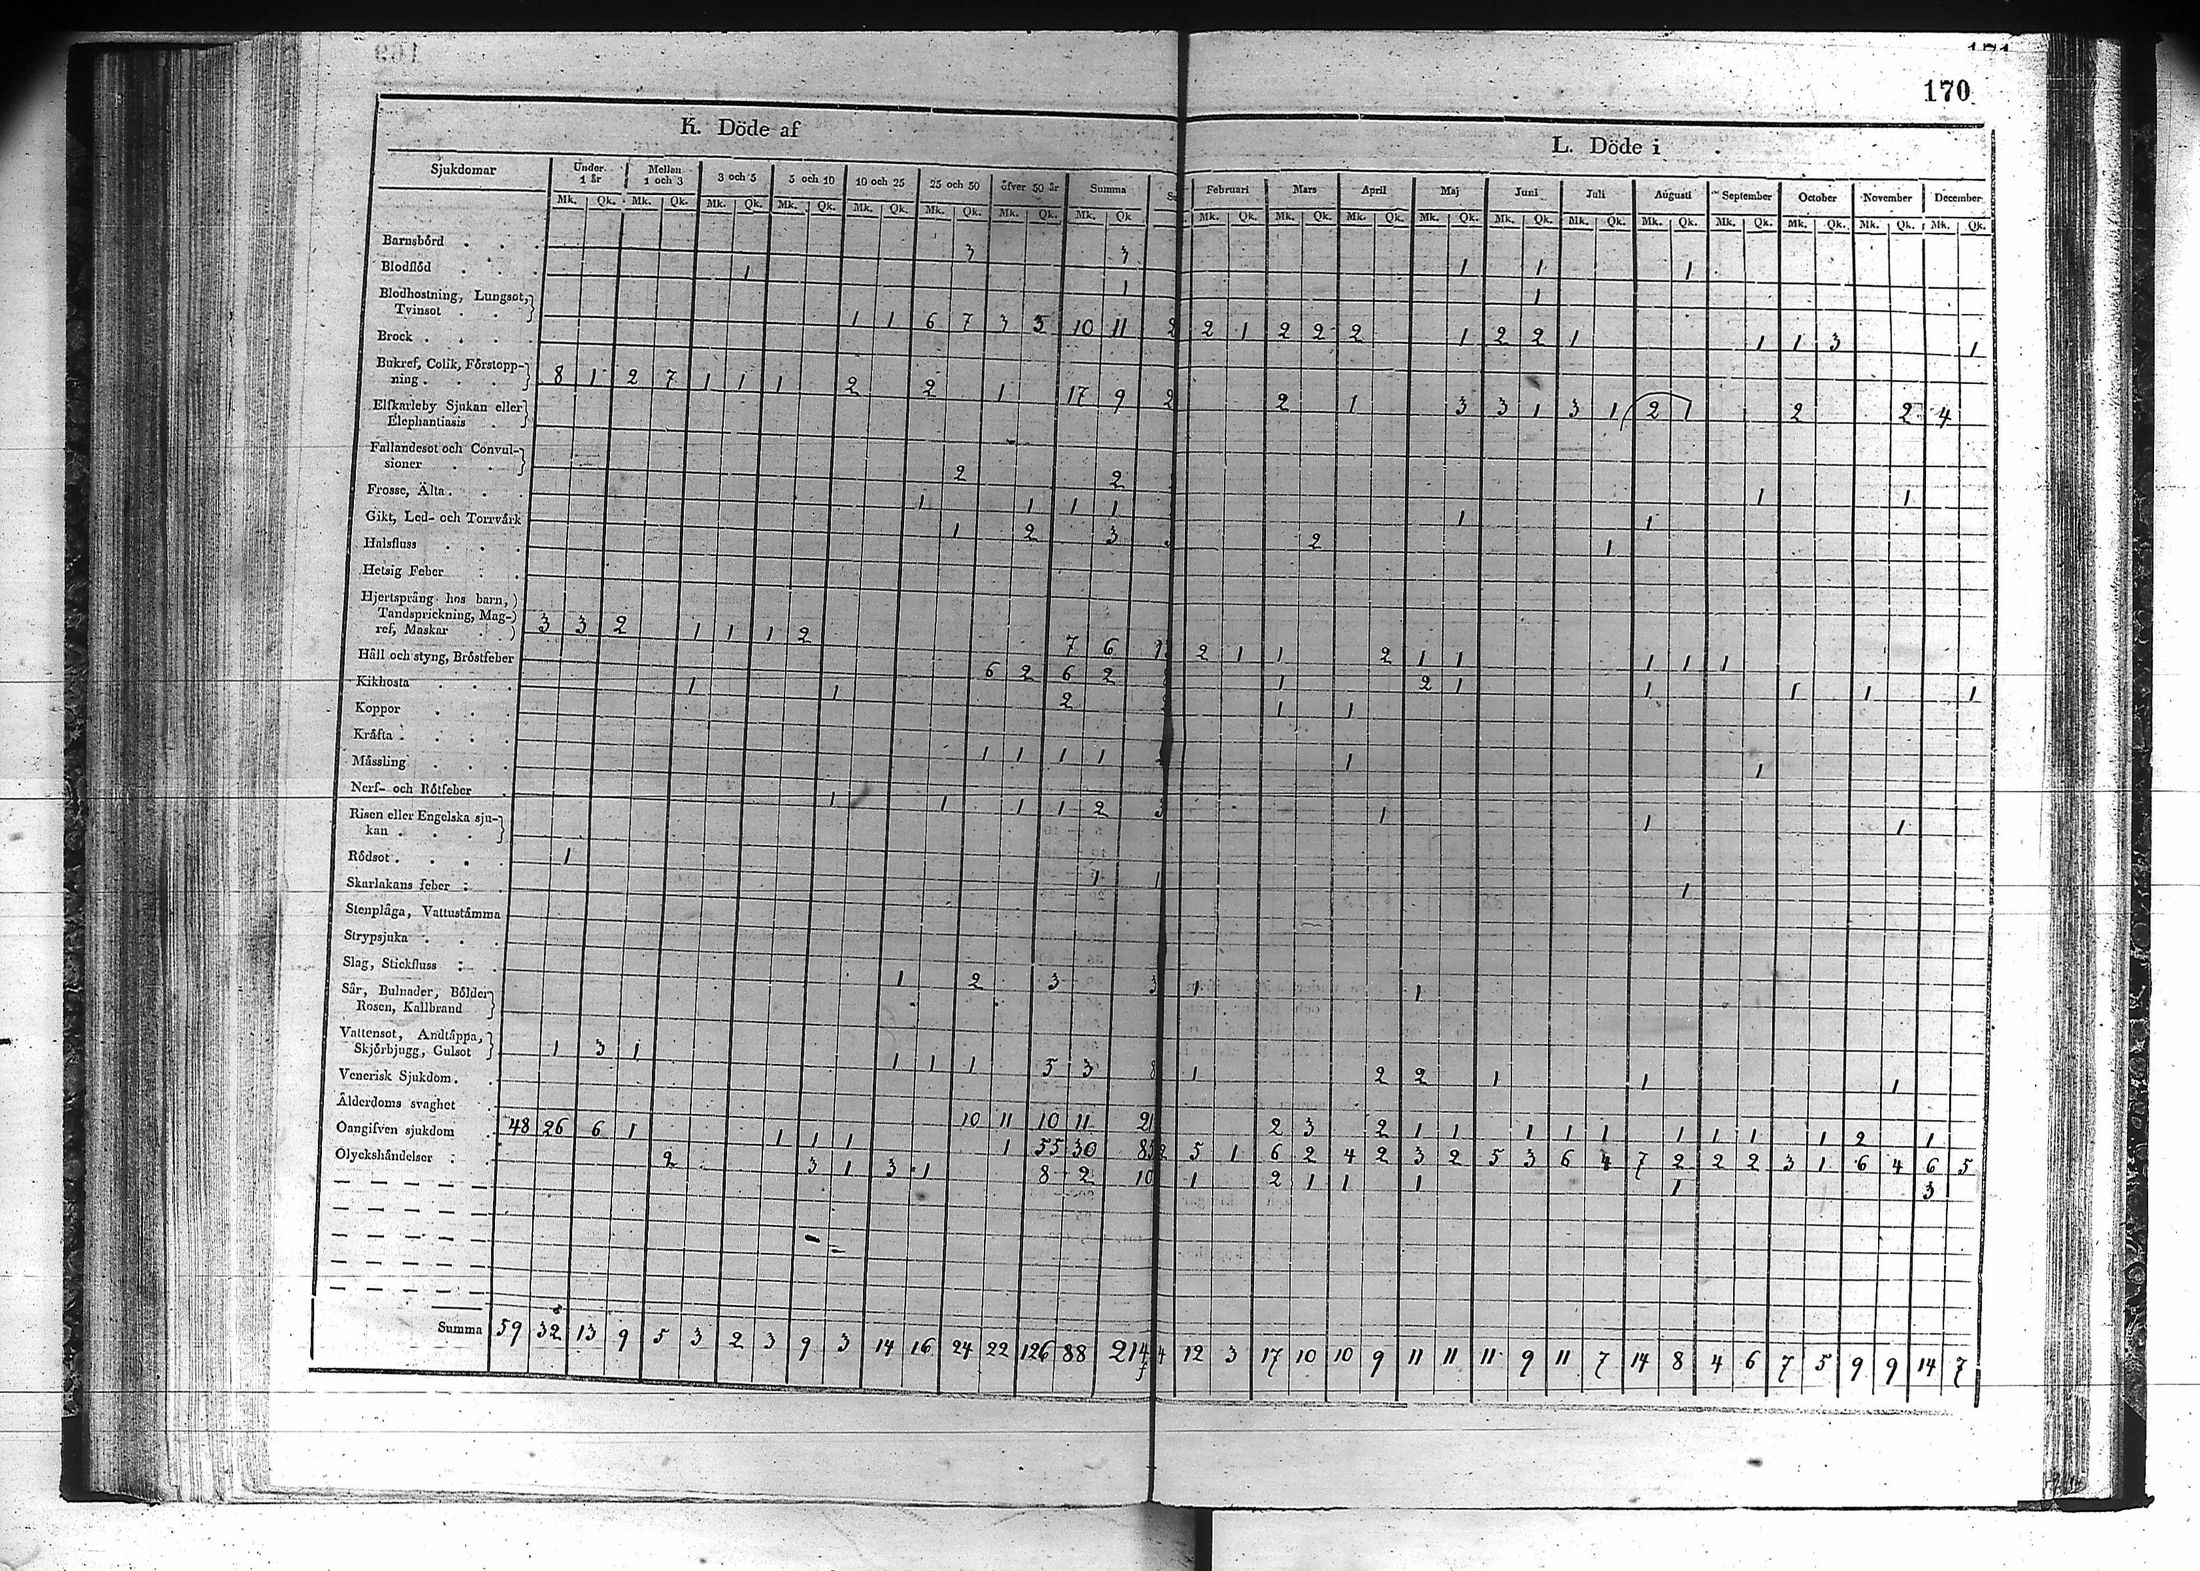 170
K. Döde af
L. Döde i
Sjukdomar Under 1 år Mellan 1 och 3 3 och 5 5 och 10 10 och 25 25 och 50 öfver 50 år Summa Februari Mars April Maj Juni Juli Augusti September October November December
Mk. Qk. Mk. Qk. Mk. Qk. Mk. Qk. Mk. Qk. Mk. Qk. Mk. Qk. Mk. Qk Mk. Qk. Mk. Qk. Mk. Qk. Mk. Qk. Mk. Qk. Mk. Qk. Mk. Qk. Mk. Qk. Mk. Qk. Mk. Qk. Mk. Qk.
Barnsbörd 3 3 1 1 1
Blodflöd 1 1 1
Blodhostning, Lungsot,
Tvinsot 1 1 6 7 3 3 10 11 2 2 1 2 2 2 1 2 2 1 1 1 3 1
Brock
Bukref, Colik, Förstopp-
ning 8 1 2 7 1 1 1 2 2 1 17 9 2 2 1 3 3 1 3 1 2 1 2 2 4
Elfkarleby Sjukan eller
Elephantiasis
Fallandesot och Convul-
sioner 2 2 1 1
Frosse, Älta 1 1 1 1 1 1
Gikt, Led- och Torrvärk 1 2 3 2 1
Halsfluss
Hetsig Feber
Hjertsprång hos barn,
Tandsprickning, Mag-
ref, Maskar 3 3 2 1 1 1 2 7 6 2 1 1 2 1 1 1 1 1
Håll och styng, Bröstfeber 6 2 6 2 1 2 1 1 1 1 1
Kikhosta 1 1 2 1 1
Koppor
Kräfta 1 1 1 1 1 1
Mässling
Nerf- och Rötfeber 1 1 1 1 2 3 1 1 1
Risen eller Engelska sju-
kan
Rödsot 1 1 1 1
Skarlakans feber
Stenplåga, Vattustämma
Strypsjuka
Slag, Stickfluss 1 2 3 3 1 1
Sår, Bulnader, Bölder
Rosen, Kallbrand
Vattensot, Andtäppa,
Skjörbjugg, Gulsot 1 3 1 1 1 1 5 3 8 1 2 2 1 1 1
Venerisk Sjukdom
Ålderdoms svaghet 10 11 10 11 21 2 3 2 1 1 1 1 1 1 1 1 1 2 1
Oangifven sjukdom 48 26 6 1 1 1 1 1 55 30 85 2 5 1 6 2 4 2 3 2 5 3 6 4 7 2 2 2 3 1 6 4 6 5
Olyckshändelser 2 3 1 3 1 8 2 10 1 2 1 1 1 1 3
Summa 59 32 13 9 5 3 2 3 9 3 14 16 24 22 126 88 214 4 12 3 17 10 10 9 11 11 11 9 11 7 14 8 4 6 7 5 9 9 14 7